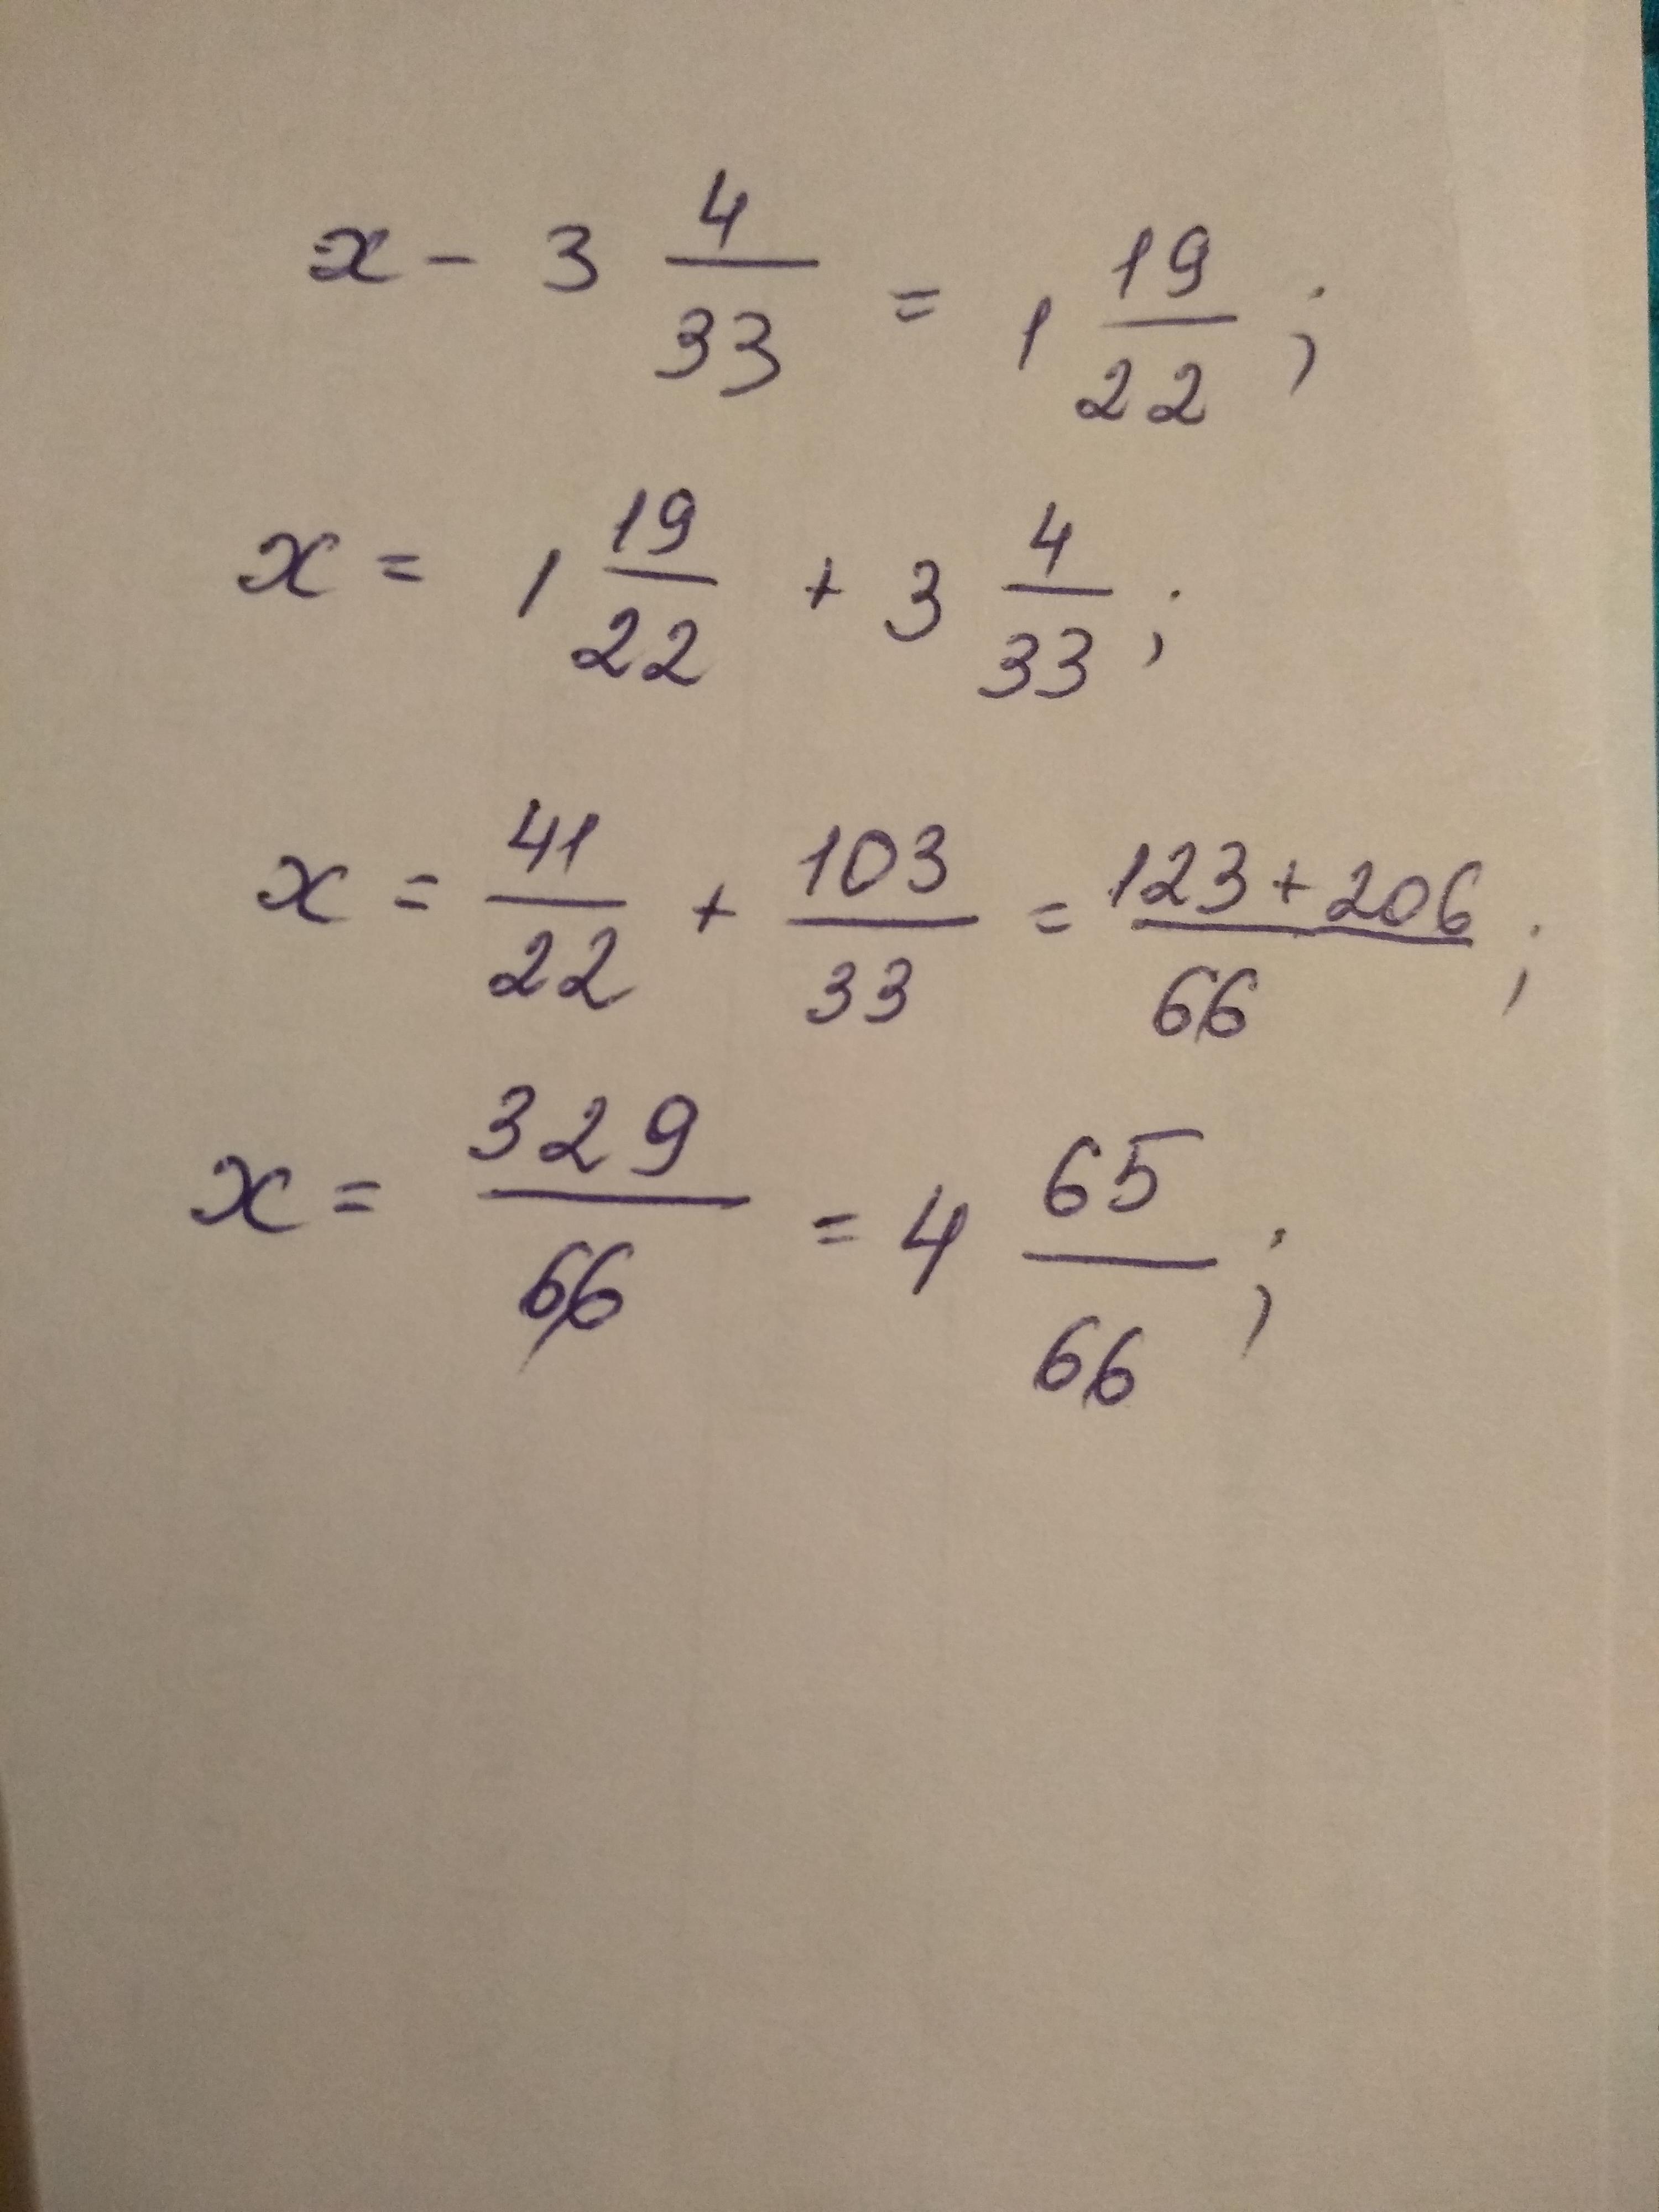 x - 3 4/33 = 1 19/22 ;
x = 1 19/22 + 3 4/33 ;
x = 41/22 + 103/33 = 123+206/66 ;
x = 329/66 = 4 65/66 ;